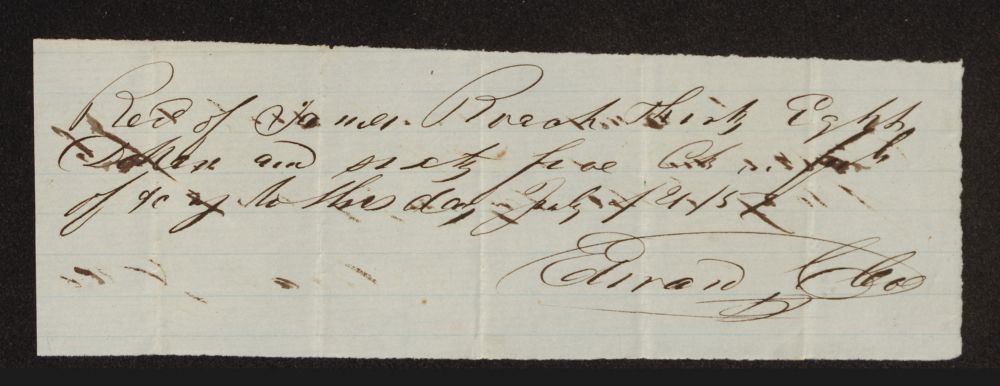 Recd of James Roach Thirty Eight
Dollars and sixty five Cts in full
of to this day July 21/57
Edward & Co